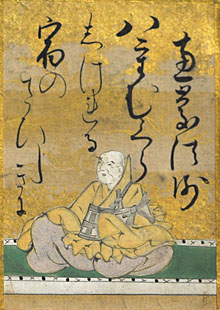 恵慶法師
八重むくら
しけれる
宿のさひしきに